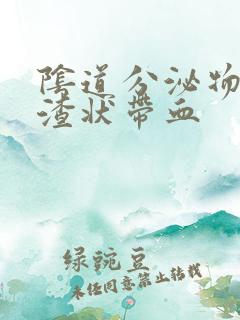 陰道分泌物
渣狀帶血
綠豌豆
未经同意禁止转载